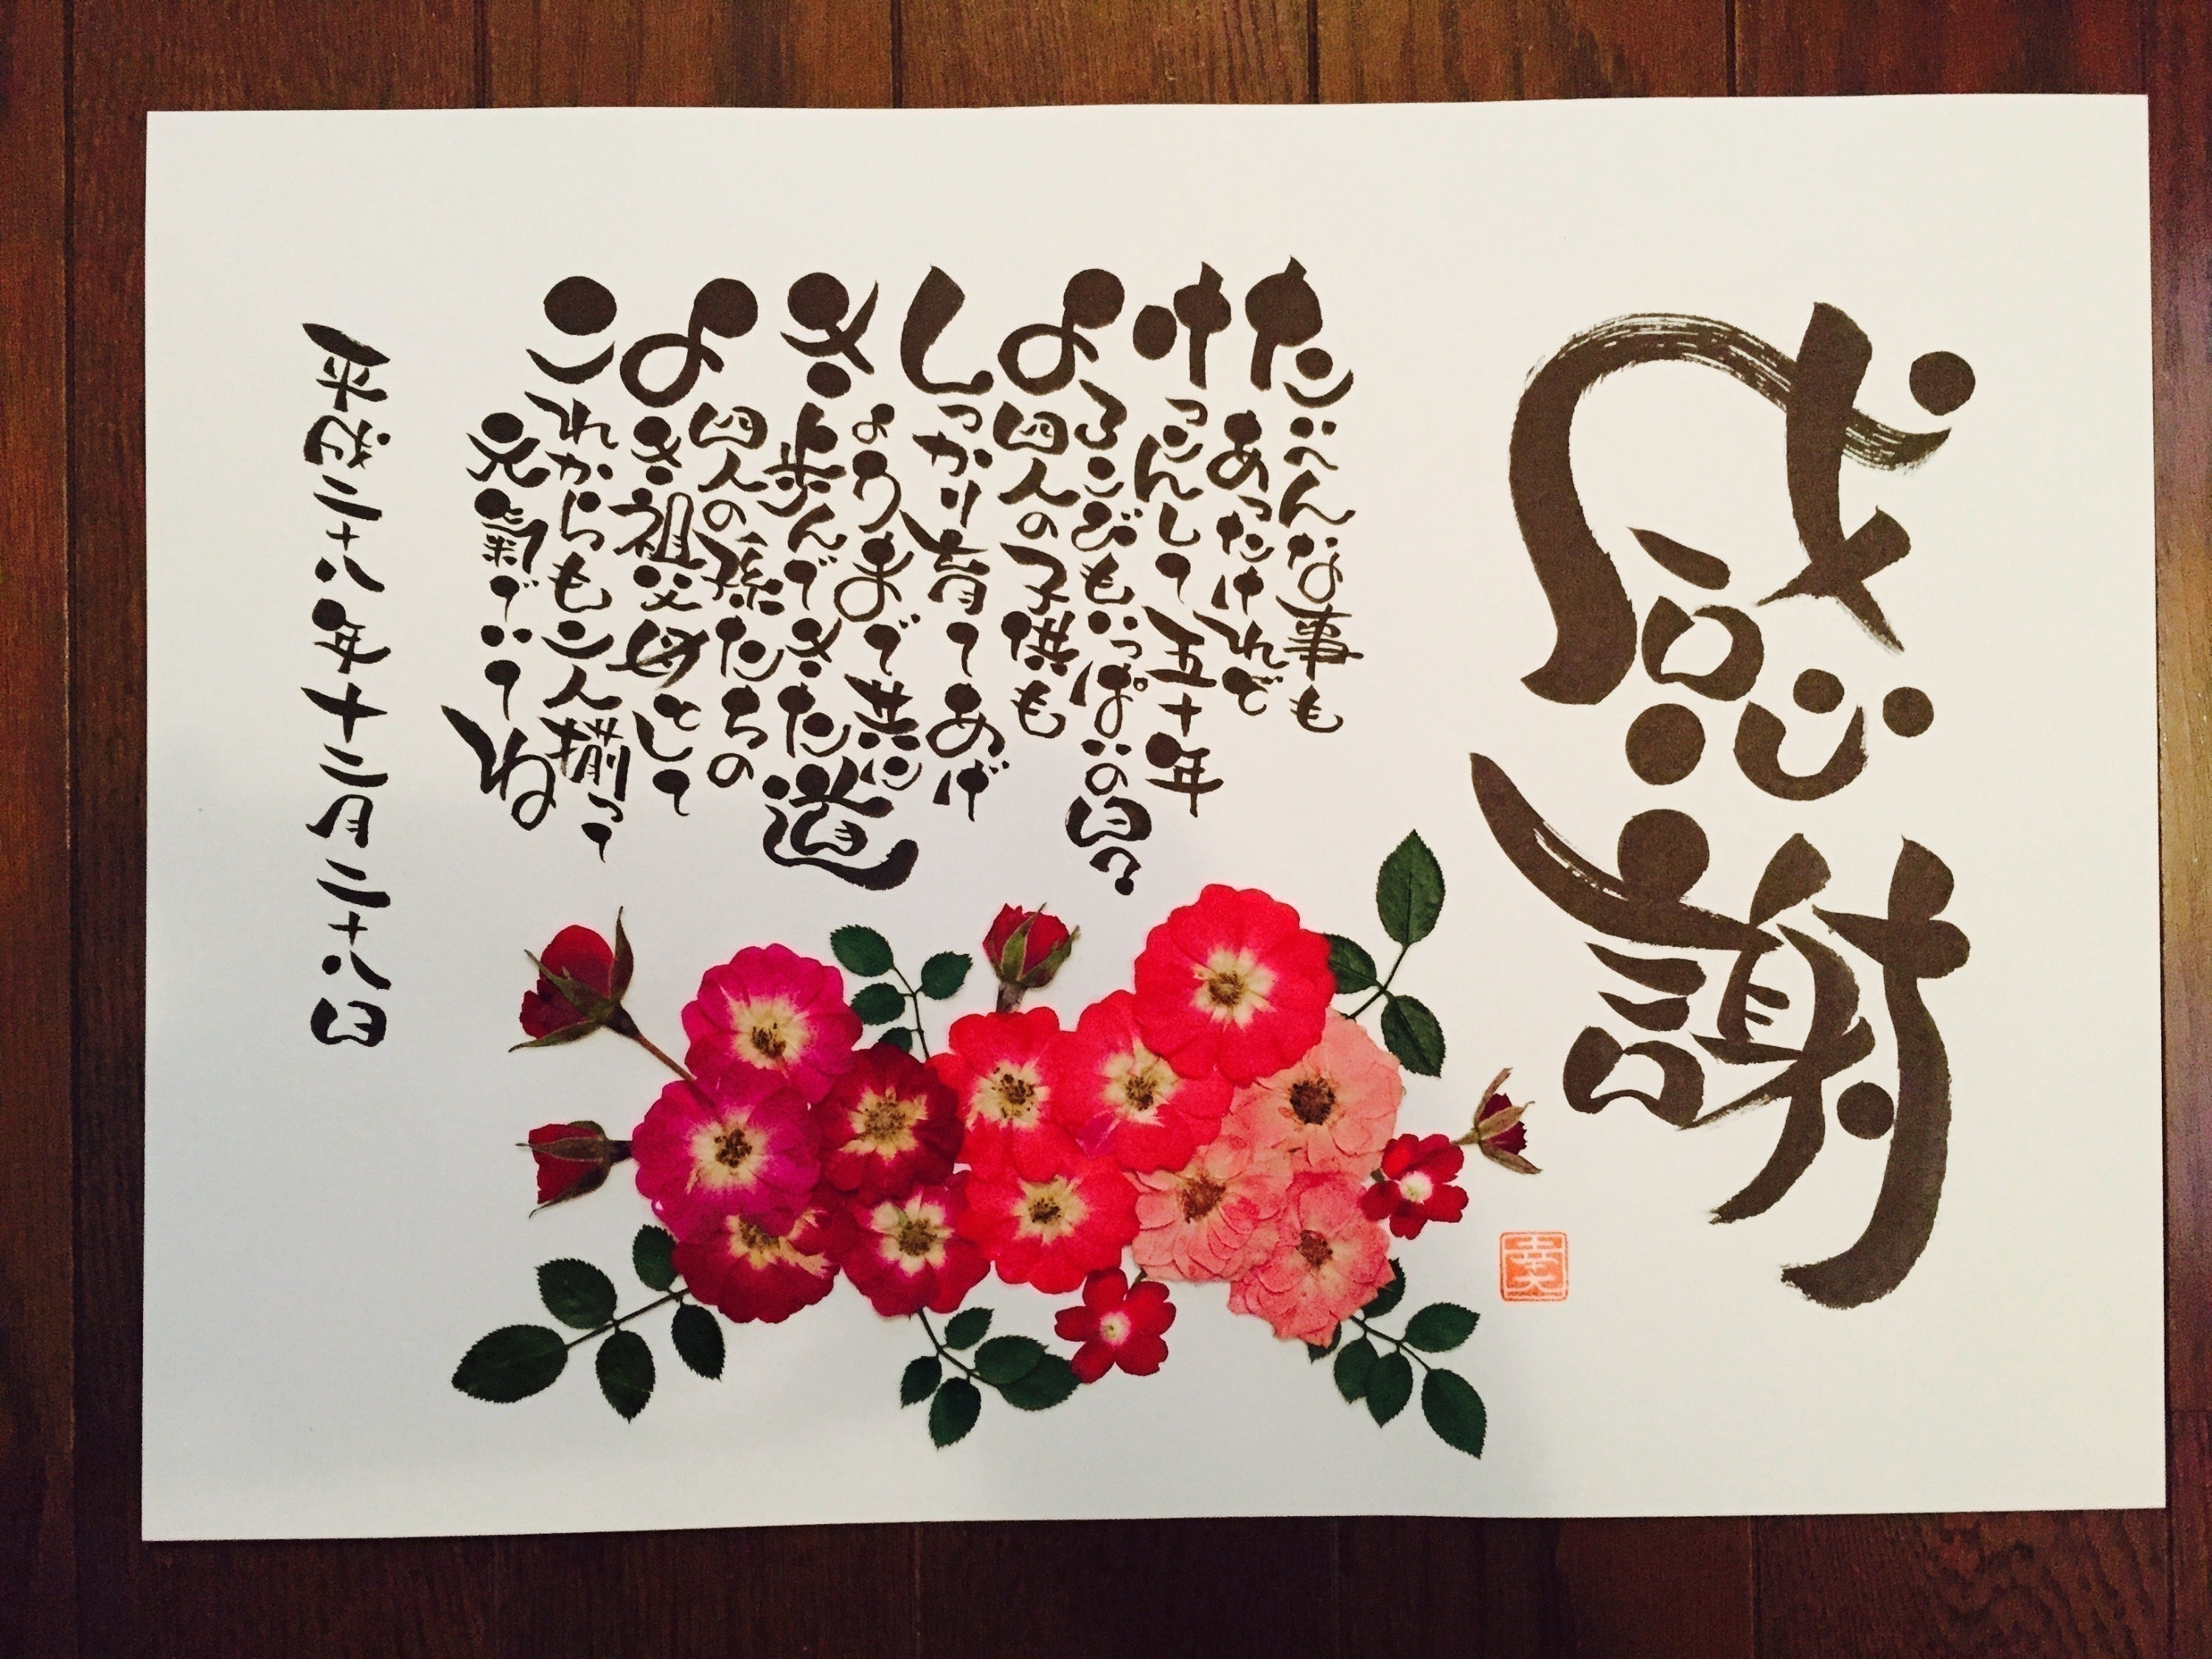 感謝
たいへんな事も
あったけれど
けっこんして五十年
よろこびもいっぱいの日々
四人の子供も
しっかり育てあげ
きょうまで共に
歩んできた道
四人の孫たちの
よき祖父母として
これからも二人揃って
元氣でいてね
平成二十八年十二月二十八日
幸